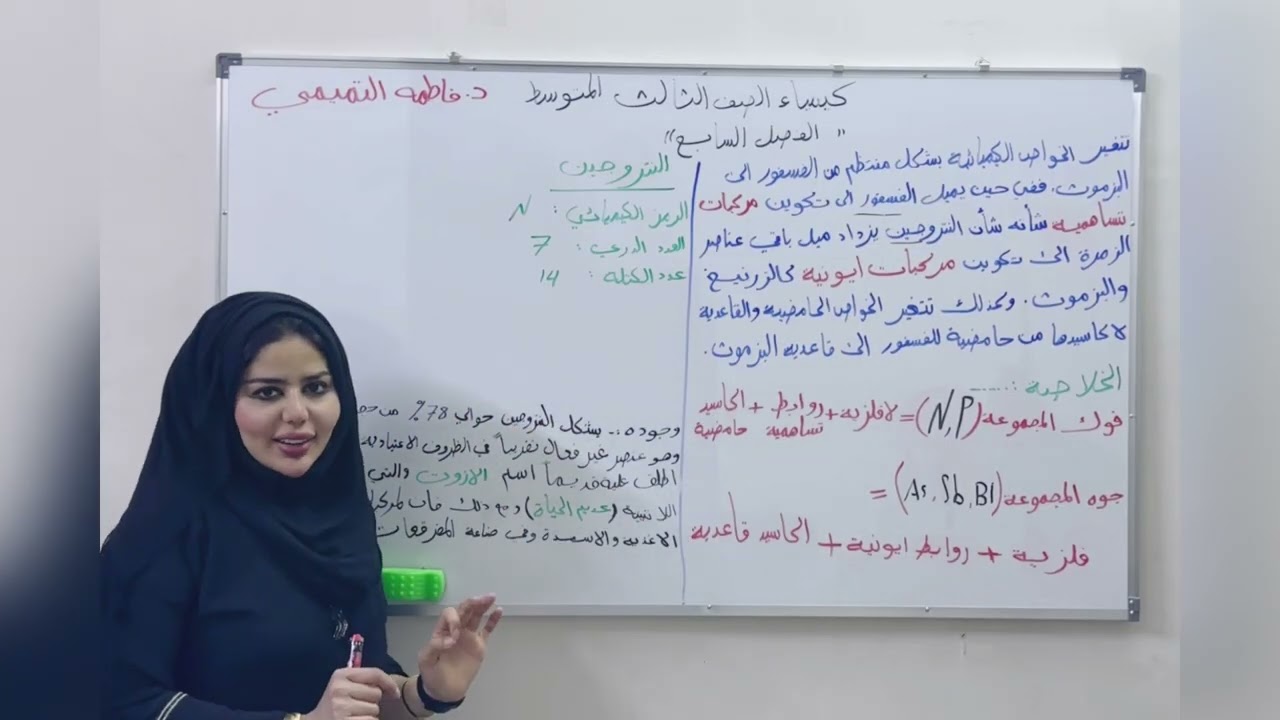 كيمياء الصف الثالث المتوسط د. فاطمه التميمي
"الفصل السابع"
تتغير الخواص الكيميائية بشكل منتظم من الفسفور الى
البزموث. ففي حين يميل الفسفور الى تكوين مركبات
تساهمية شأنه شأن النتروجين يزداد ميل باقي عناصر
الزمرة الى تكوين مركبات ايونية كالزرنيخ
والبزموث. وكذلك تتغير الخواص الحامضية والقاعدية
لاكاسيدها من حامضية للفسفور الى قاعدية البزموث.
الخلاصة :......
فوك المجموعة (N,P) = لافلزية + روابط تساهمية + اكاسيد حامضية
جوه المجموعة (As, Sb, BI) =
فلزية + روابط ايونية + اكاسيد قاعدية
النتروجين
الرمز الكيميائي : N
العدد الذري : 7
عدد الكتلة : 14
وجوده :- يشكل النتروجين حوالي 78% من
وهو عنصر غير فعال تقريباً في الظروف الاعتيادية
اطلق عليه قديماً اسم الازوت والتي
اللاتينية (عديم الحياة) ومع ذلك فان
الاغذية والاسمدة وفي صناعة المفرقعات